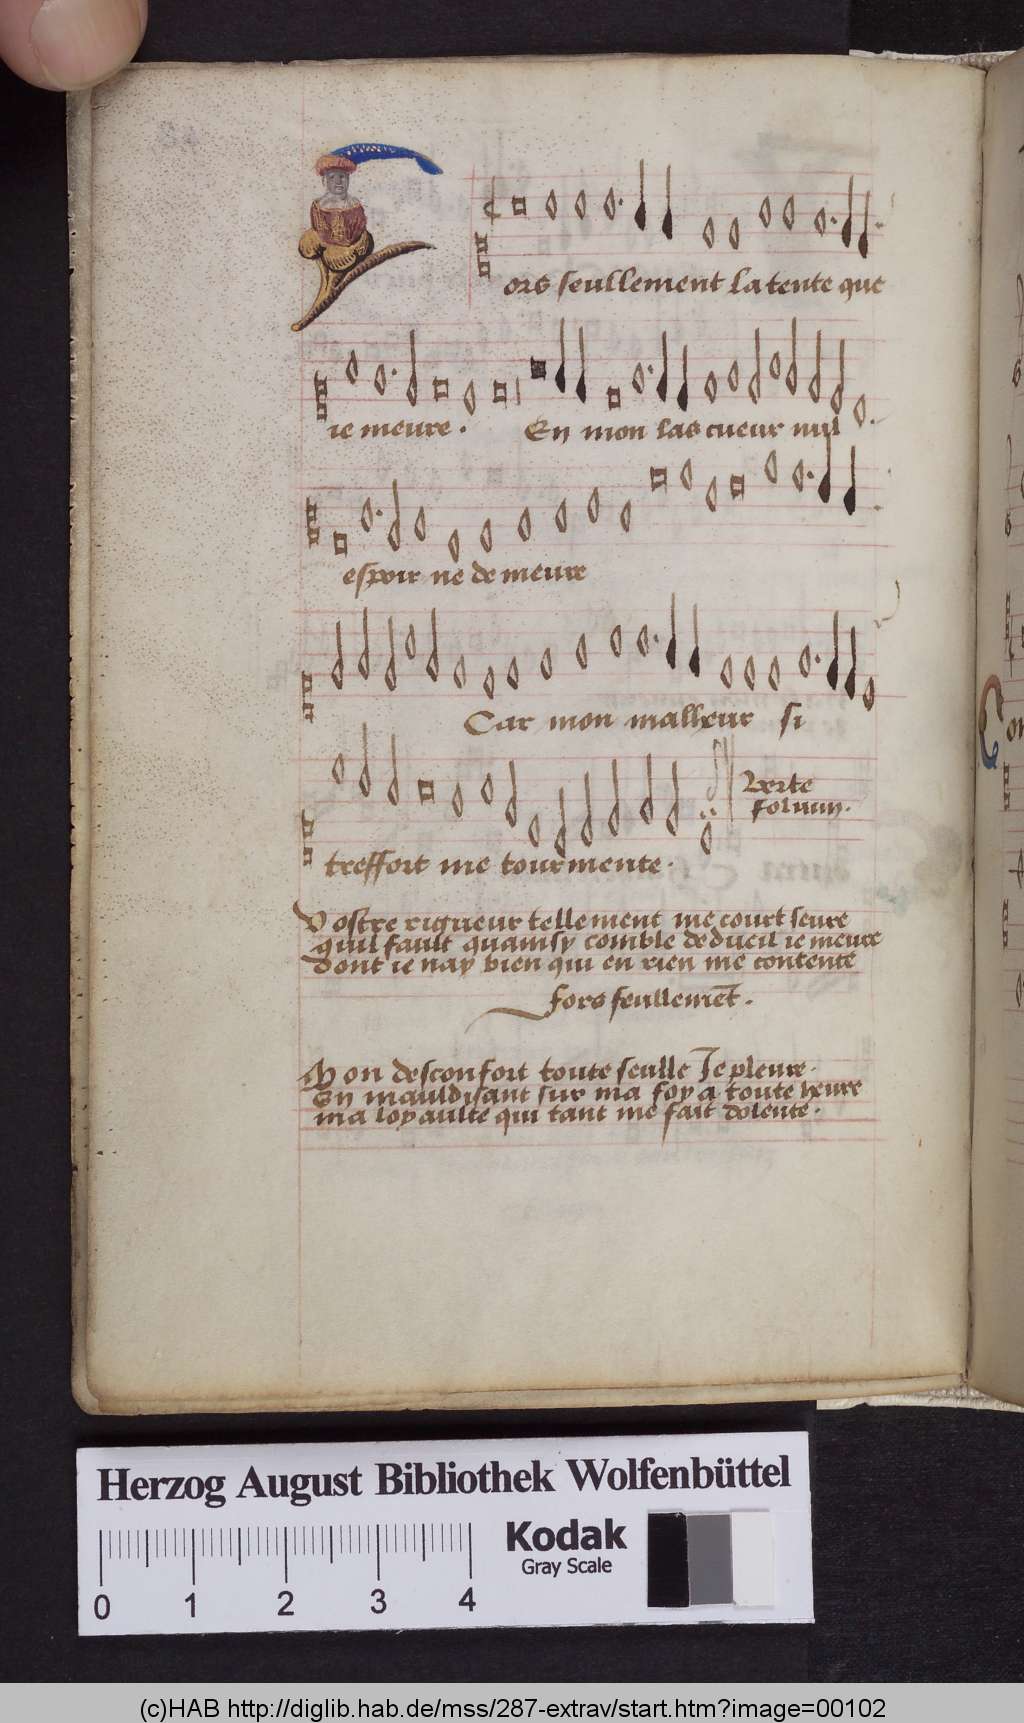 ors seullement latente que
ie meure . En mon las cueur nul
espoir ne demeure
Car mon malheur si
treffort me tourmente .
Verte
folium .
Vostre rigueur tellement me court seure
quil fault quainsy comble dedueil ie meure
dont ie nay bien qui en rien me contente
fors seullemēt .
Mon desconfort toute seulle Je pleure .
En mauldisant sur ma foy a toute heure
ma loyaulte qui tant me fait dolente .
Herzog August Bibliothek Wolfenbüttel
Kodak
Gray Scale
0 1 2 3 4
(c)HAB http://diglib.hab.de/mss/287-extrav/start.htm?image=00102